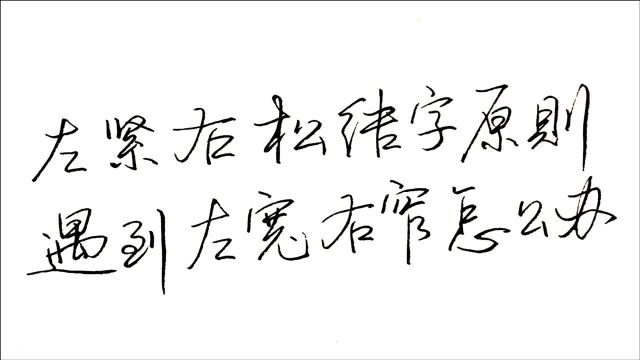 左紧右松结字原則
遇到左宽右窄怎么办